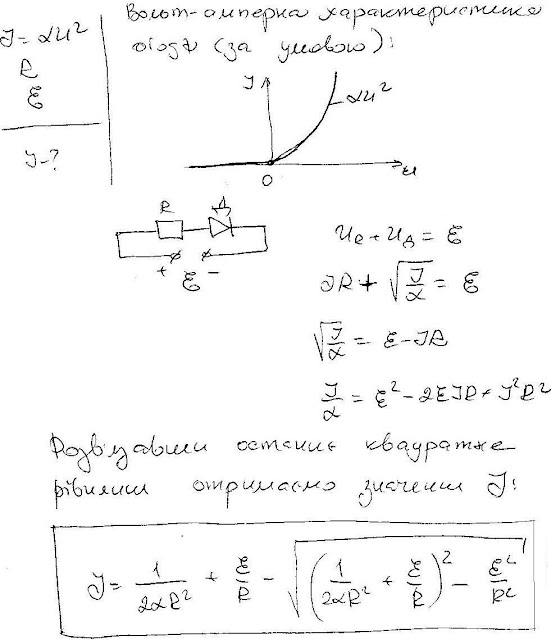 J = αU²
R
ℰ
J - ?
Вольт-амперна характеристика
діоду (за умовою):
J
αU²
O
U
R
Д
+ ℰ -
U_R + U_Д = ℰ
JR + √(J/α) = ℰ
√(J/α) = ℰ - JR
J/α = ℰ² - 2ℰJR + J²R²
Розв'язавши останнє квадратне
рівняння отримаємо значення J:
J = 1/(2αR²) + ℰ/R - √((1/(2αR²) + ℰ/R)² - ℰ²/R²)